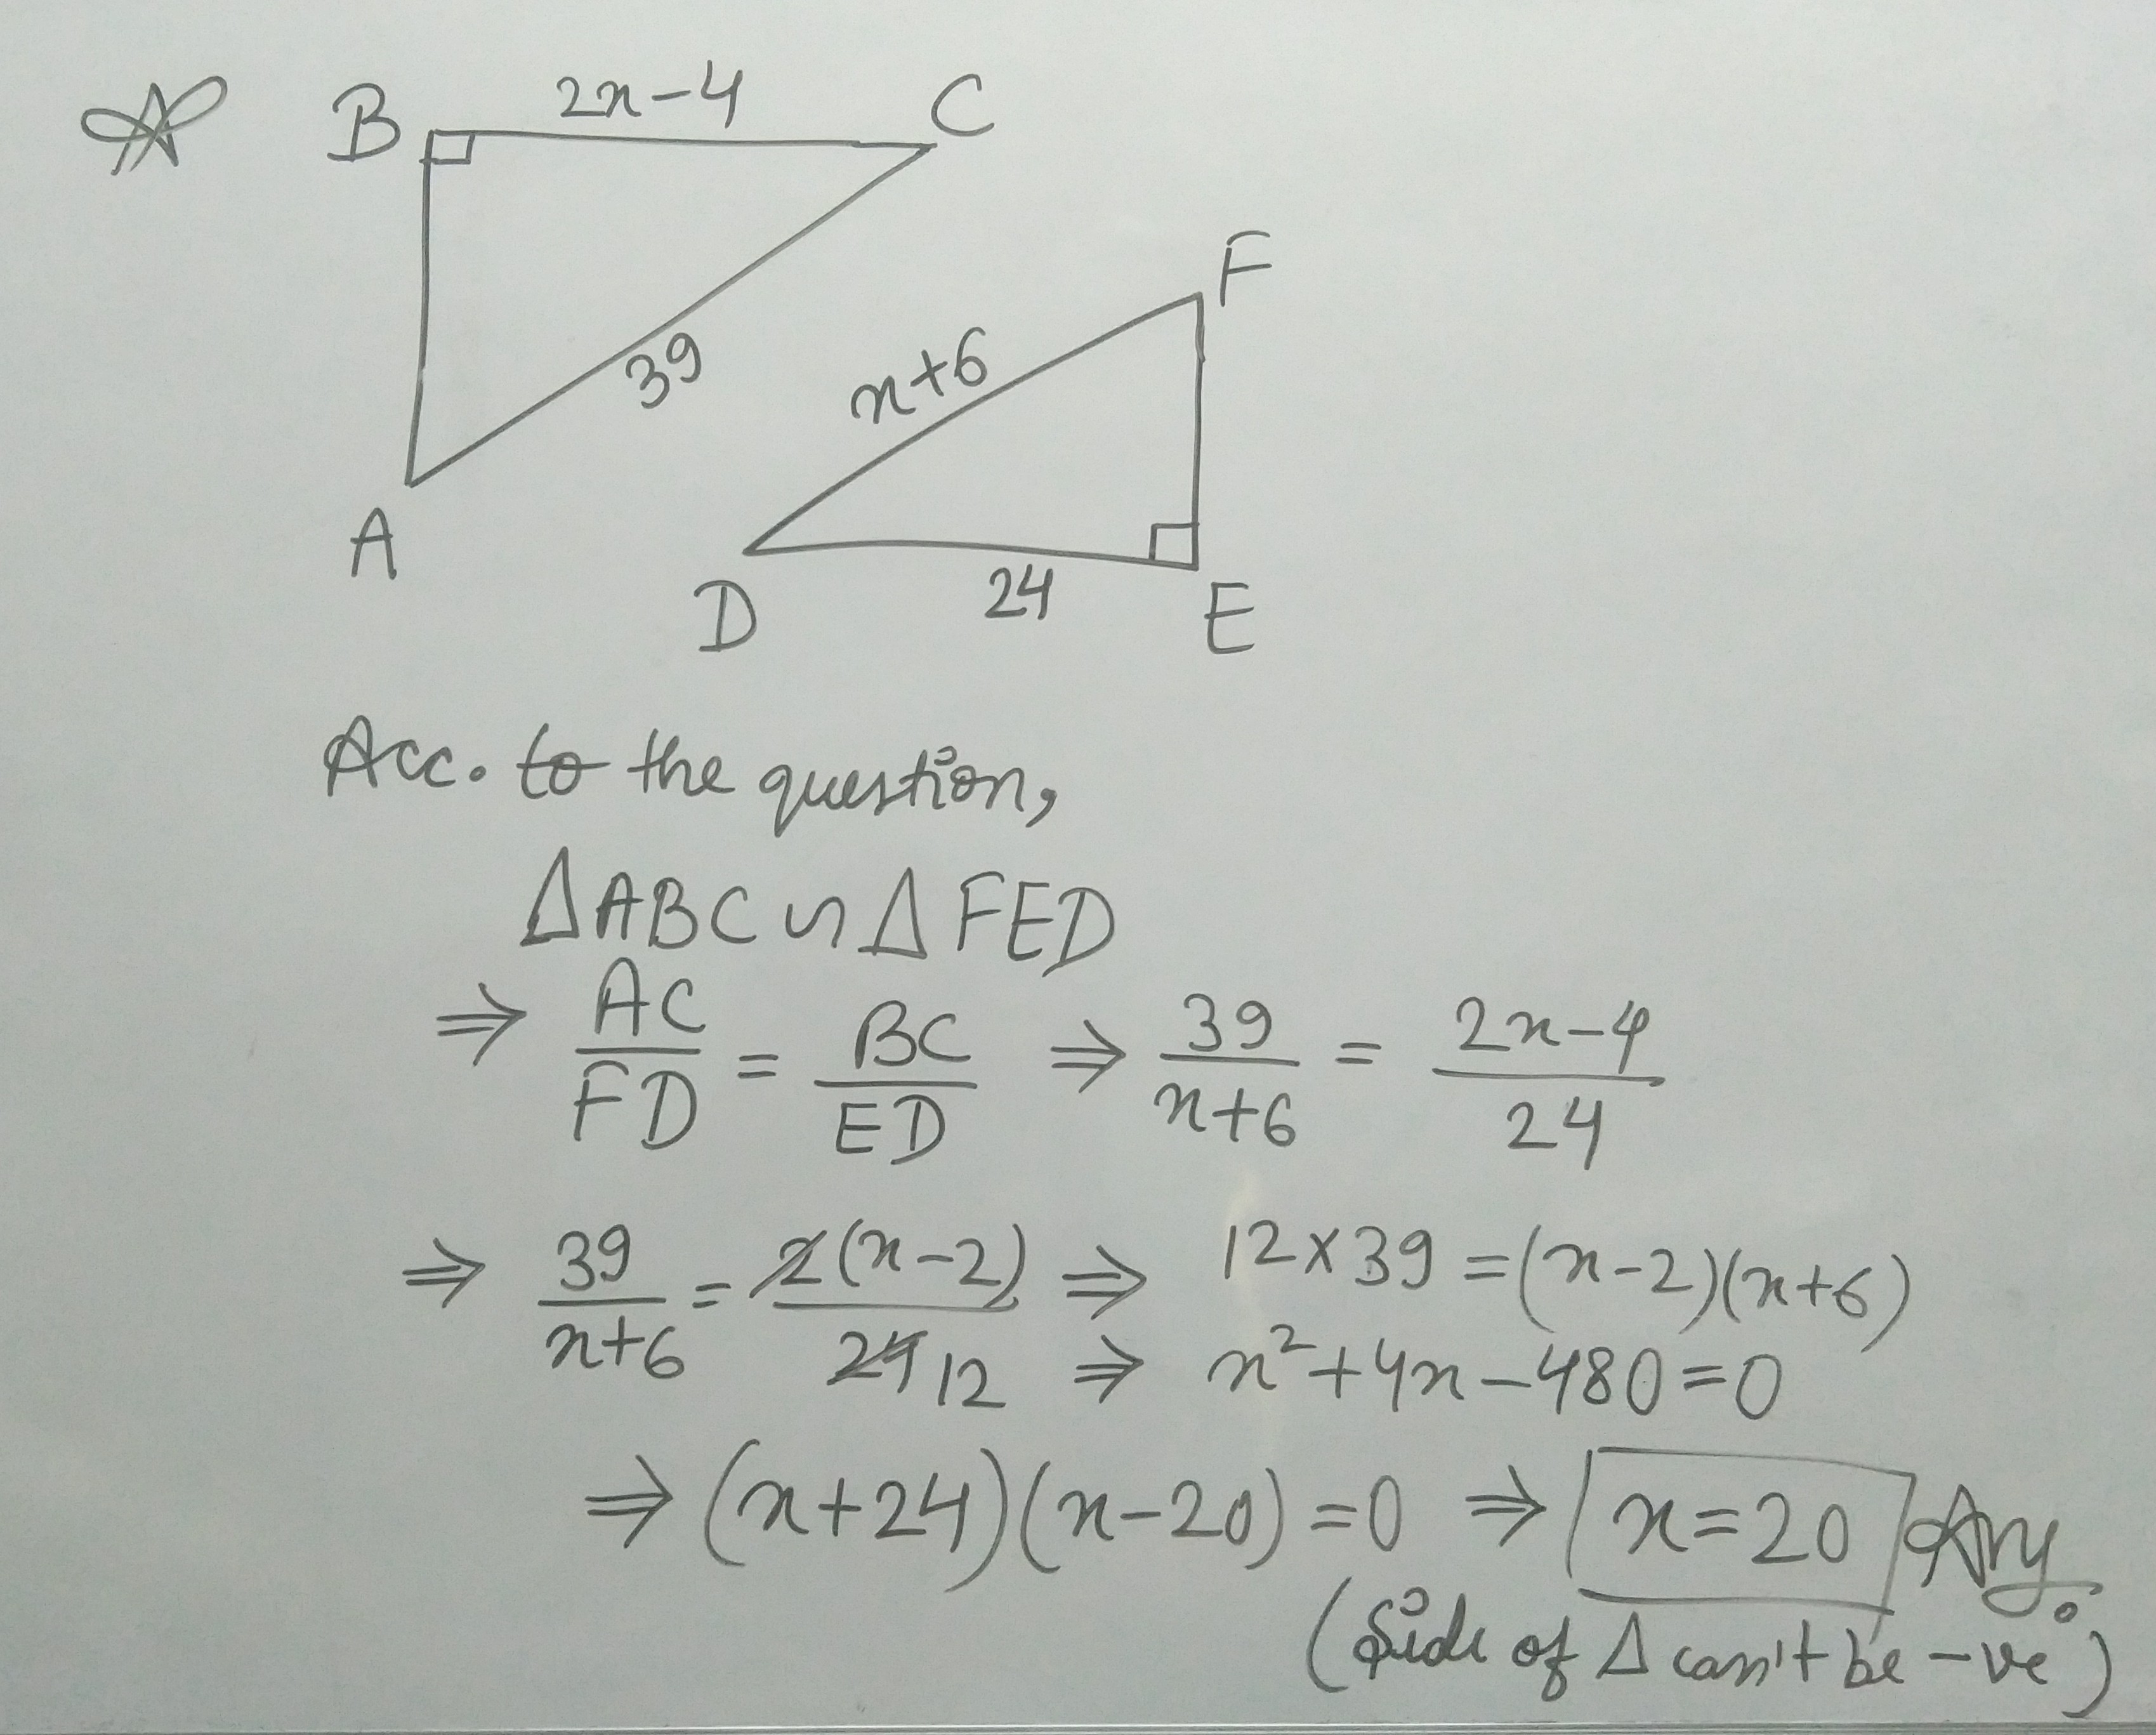 B 2x-4 C
39
A
F
x+6
D 24 E
Acc. to the question,
ΔABC ∽ Δ FED
⇒ AC/FD = BC/ED ⇒ 39/x+6 = 2x-4/24
⇒ 39/x+6 = 2(x-2)/24 12 ⇒ 12×39 = (x-2)(x+6)
⇒ x²+4x-480=0
⇒ (x+24)(x-20)=0 ⇒ x=20 Ans.
(Side of Δ can't be -ve)